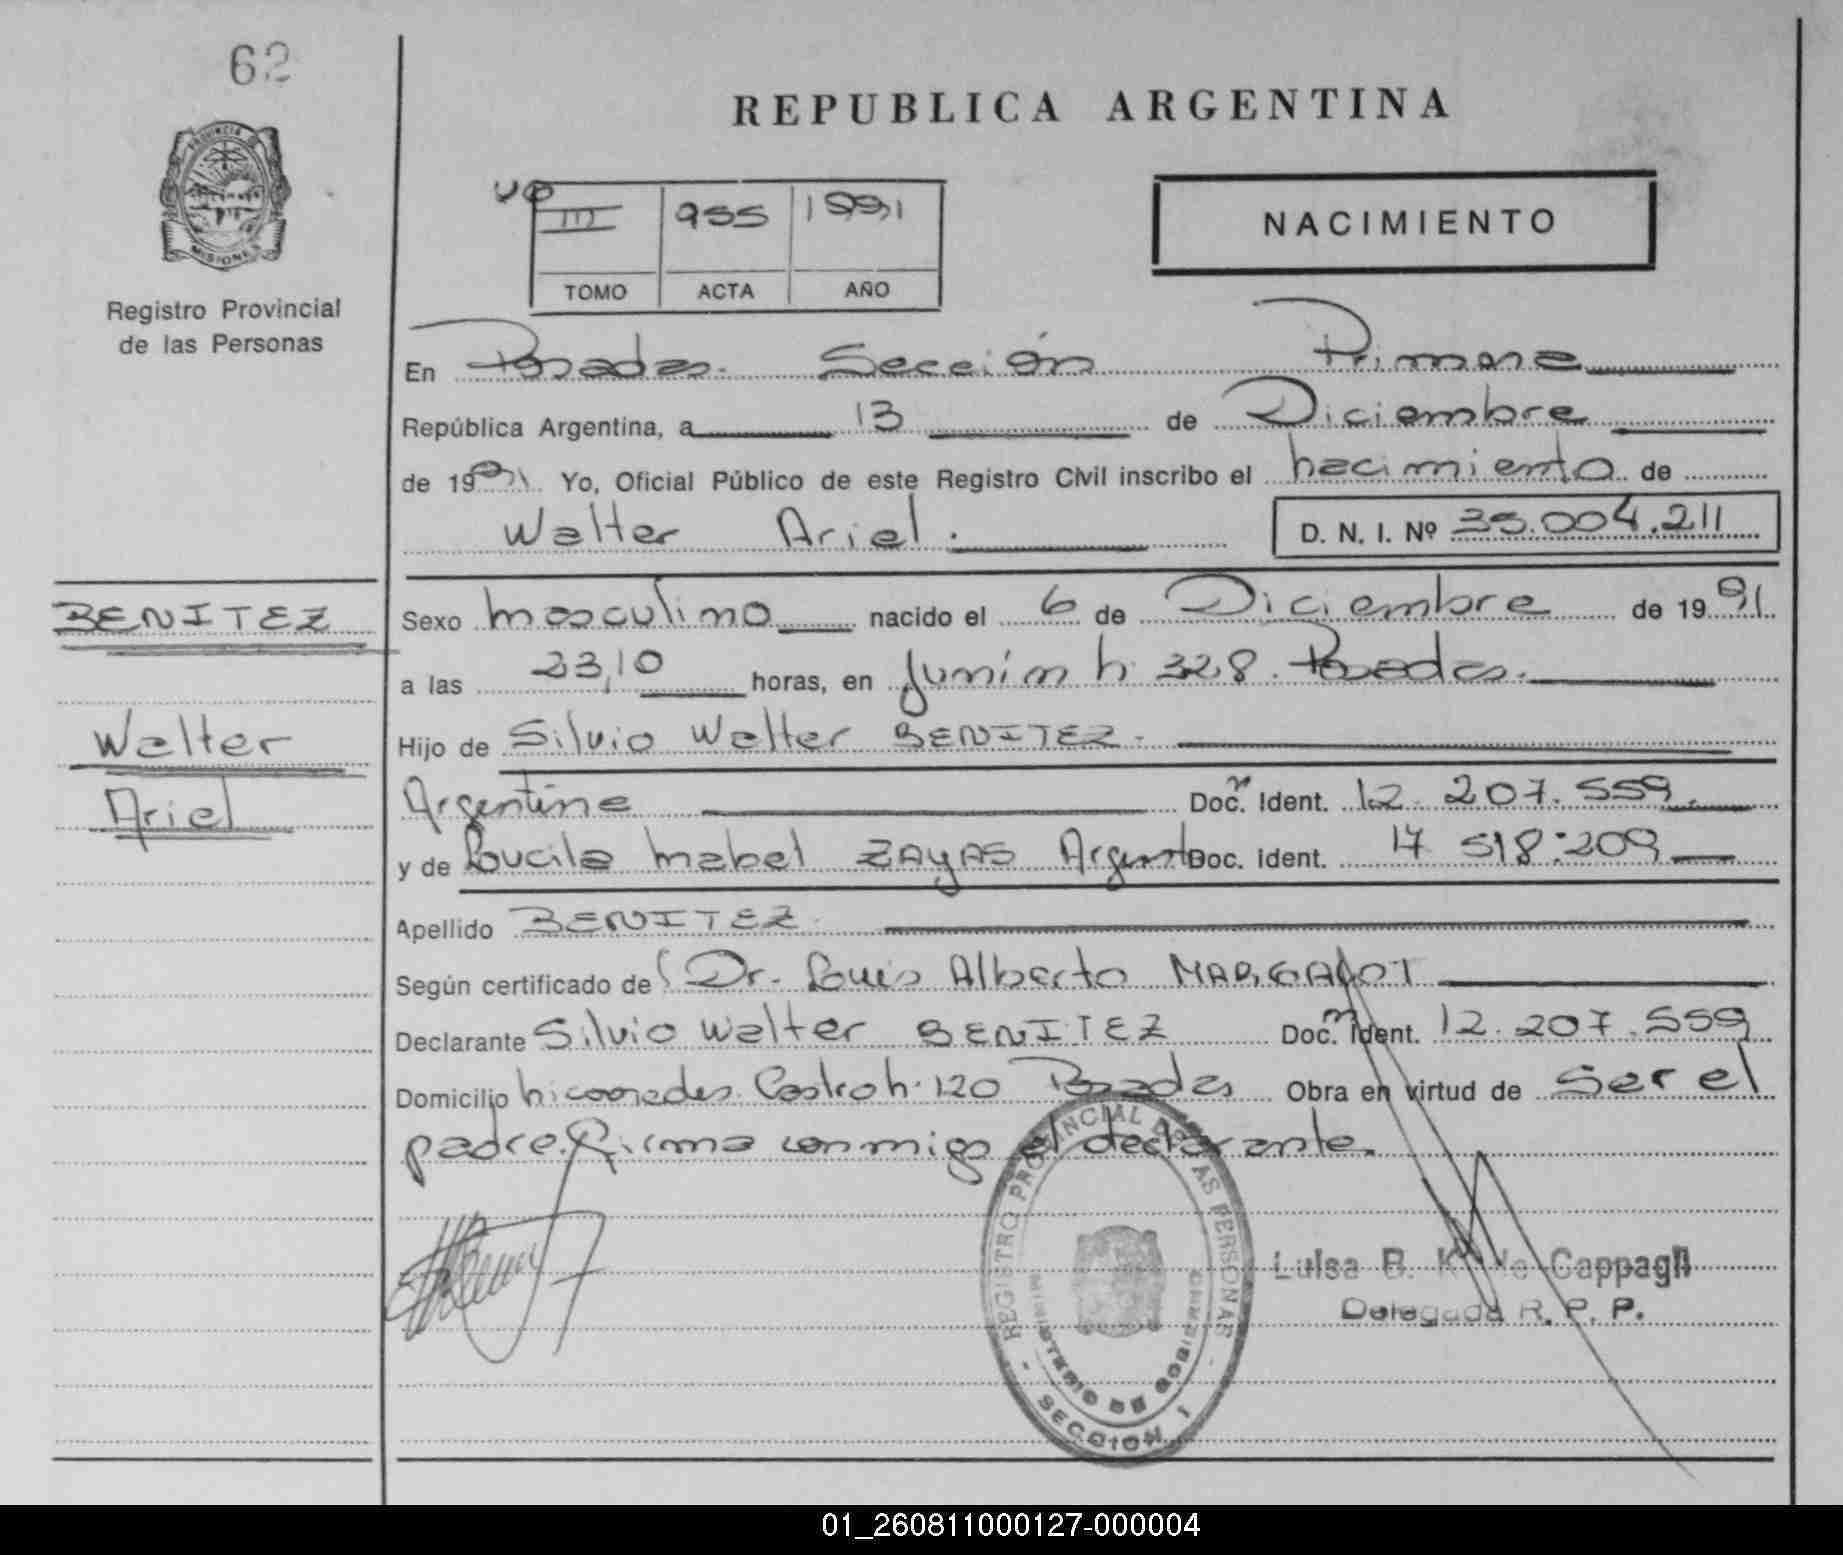 62
REPUBLICA ARGENTINA
PROVINCIA DE
MISIONES
Registro Provincial
de las Personas
III 955 1991
TOMO ACTA AÑO
NACIMIENTO
En Posadas. Sección Primera
República Argentina, a 13 de Diciembre
de 1991 Yo, Oficial Público de este Registro Civil inscribo el nacimiento de
Walter Ariel. D. N. I. Nº 35.004.211
BENITEZ
Walter
Ariel
Sexo masculino nacido el 6 de Diciembre de 1991
a las 23,10 horas, en Junín n 328. Posadas.
Hijo de Silvio Walter BENITEZ.
Argentino Doc. Ident. 12.207.559.
y de Lucila Mabel ZAYAS Argent Doc. Ident. 17 518.209
Apellido BENITEZ.
Según certificado de Dr. Luis Alberto
Declarante Silvio Walter BENITEZ Doc. Ident. 12.207.559
Domicilio Nicomedes Castro n. 120 Posadas Obra en virtud de ser el
padre. Firma conmigo el declarante.
REGISTRO PROVINCIAL DE LAS PERSONAS
MINISTERIO DE GOBIERNO
SECCION 1
Luisa B. K. de Cappagli
Delegada R. P. P.
01_260811000127-000004